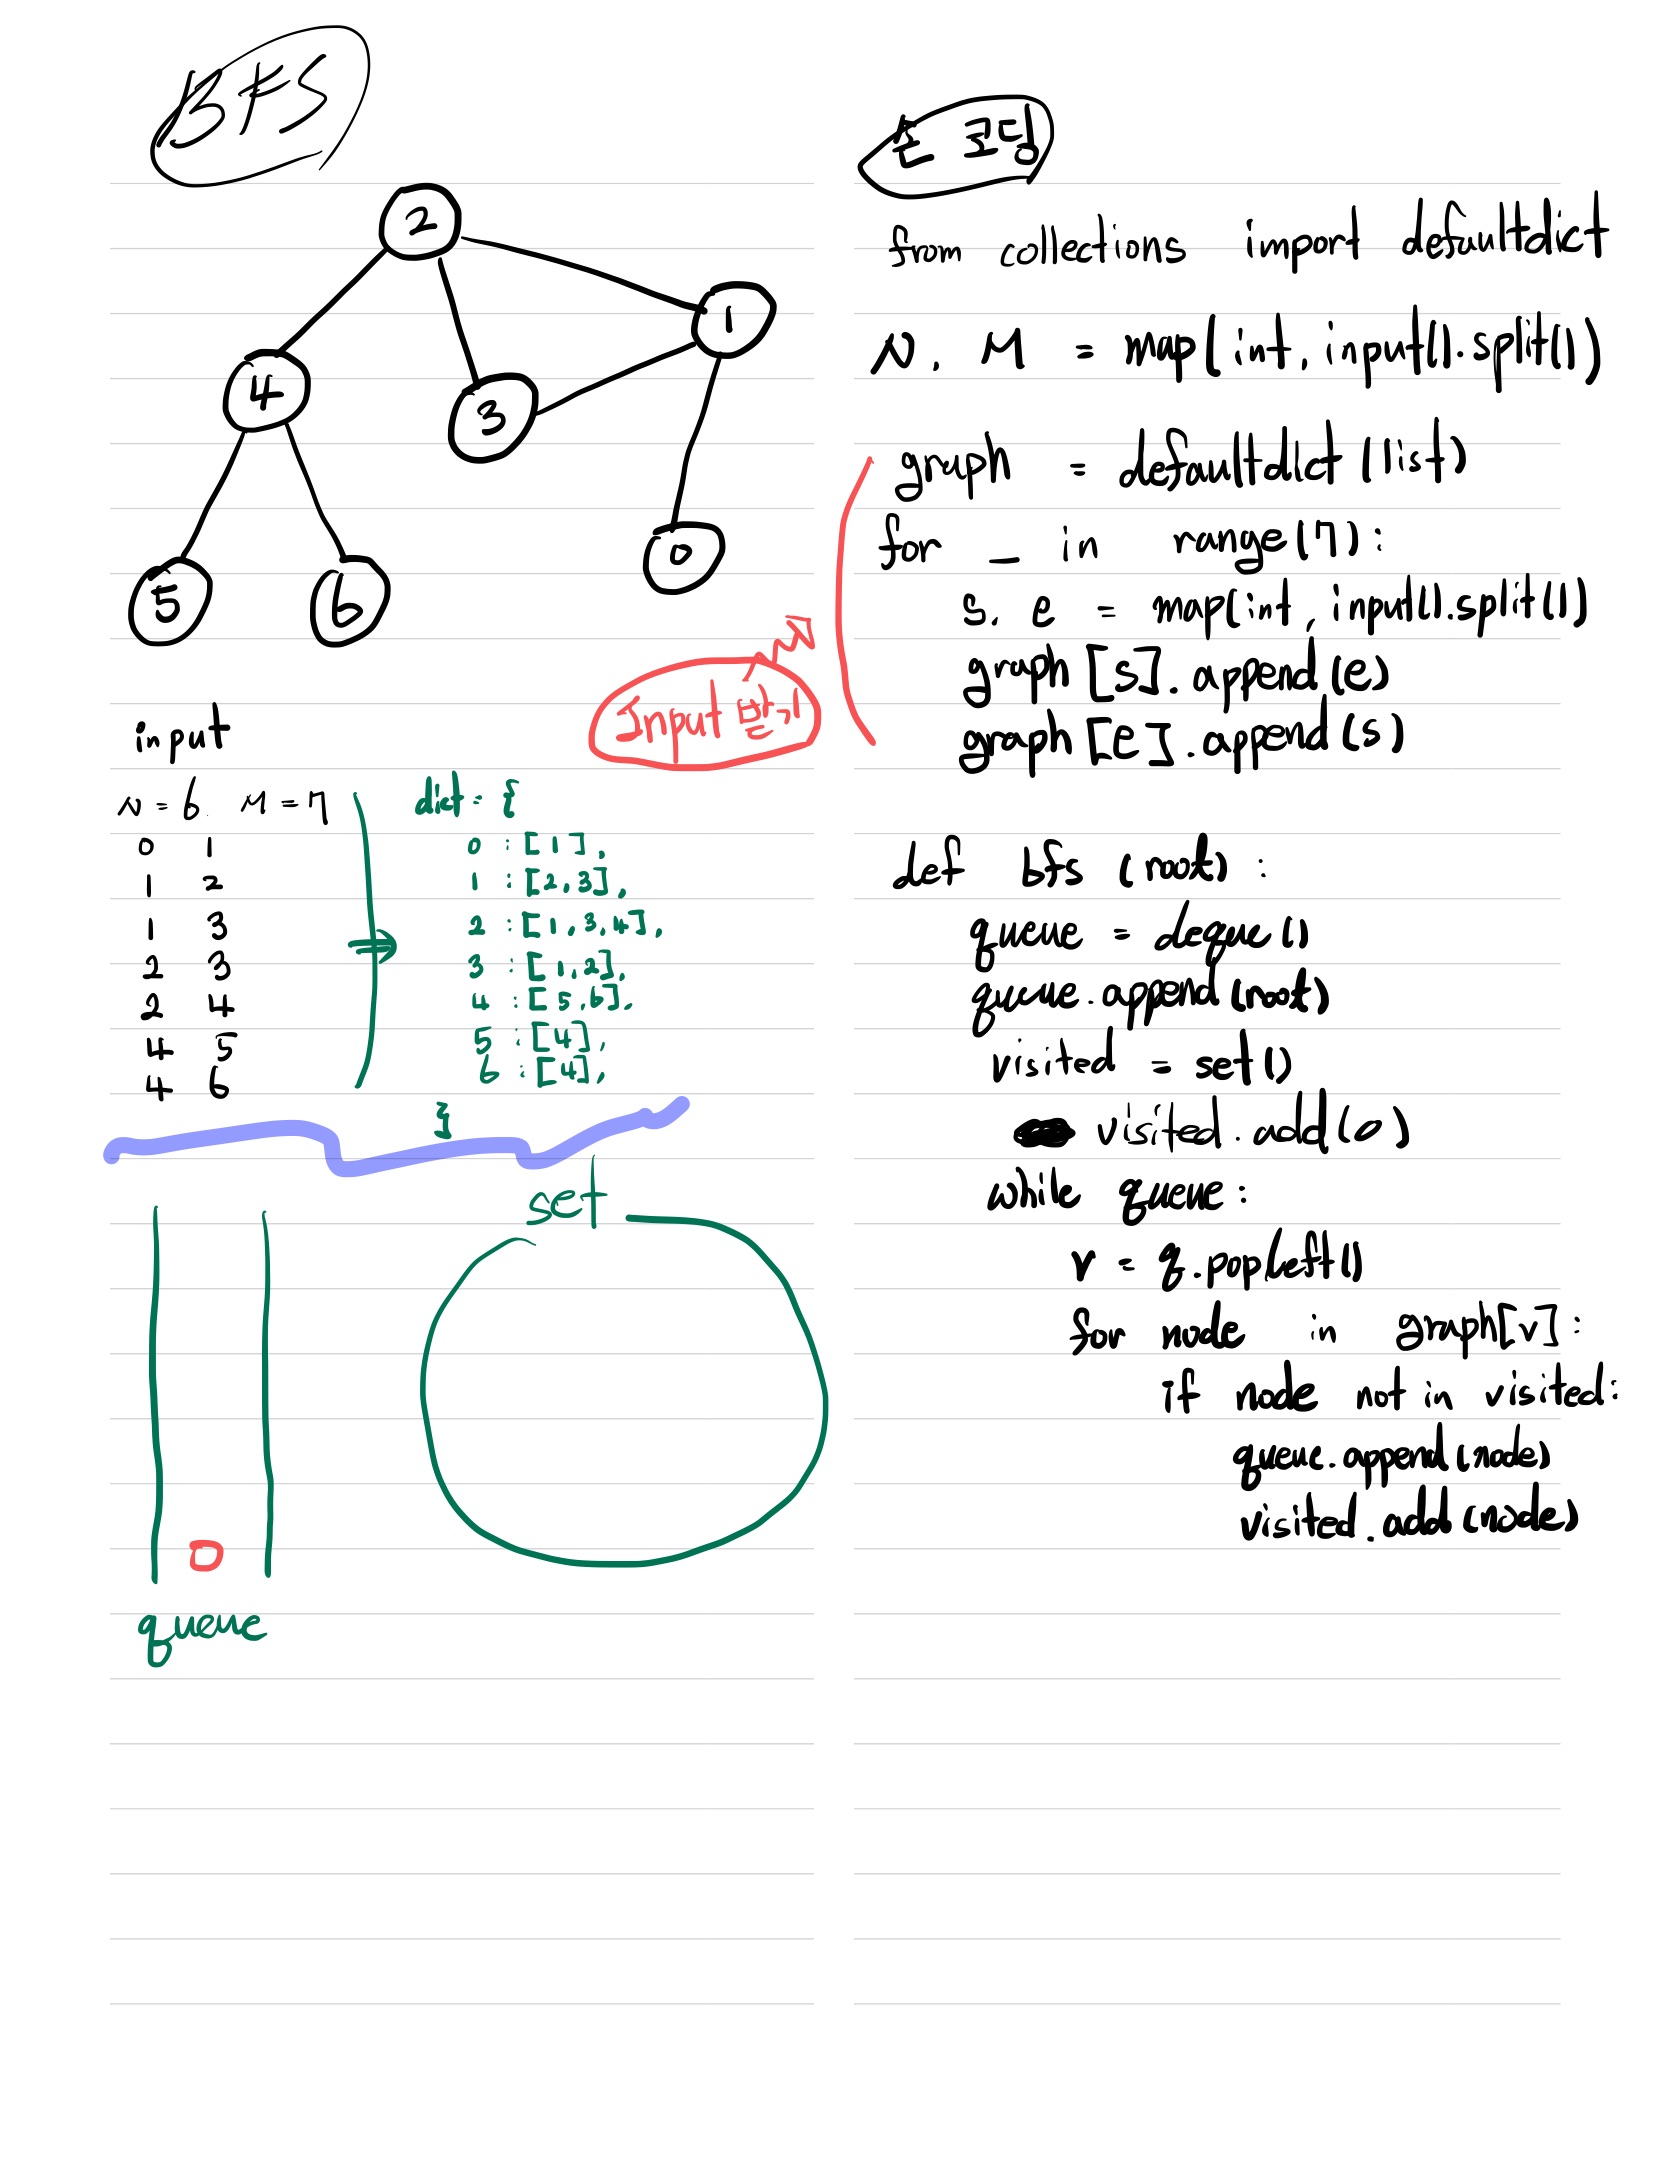 BFS
2
1
4
3
0
5
6
input
N = 6. M = 7
0 1
1 2
1 3
2 3
2 4
4 5
4 6
dict = {
0 : [1],
1 : [2,3],
2 : [1,3,4],
3 : [1,2],
4 : [5,6],
5 : [4],
6 : [4],
}
set
0
queue
손 코딩
from collections import defaultdict
N, M = map(int, input().split())
Input 받기
graph = defaultdict(list)
for _ in range(7):
s, e = map(int, input().split())
graph[s].append(e)
graph[e].append(s)
def bfs (root) :
queue = deque()
queue.append(root)
visited = set()
visited.add(0)
while queue:
v = q.popleft()
for node in graph[v]:
if node not in visited:
queue.append(node)
visited.add(node)